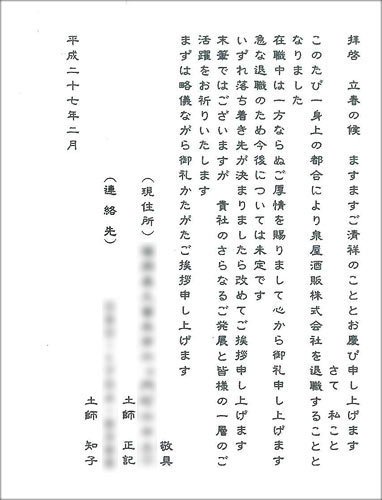 拝啓　立春の候　ますますご清祥のこととお慶び申し上げます
さて　私こと
このたび一身上の都合により泉屋酒販株式会社を退職することと
なりました
在職中は一方ならぬご厚情を賜りまして心から御礼申し上げます
急な退職のため今後については未定です
いずれ落ち着き先が決まりましたら改めてご挨拶申し上げます
末筆ではございますが　貴社のさらなるご発展と皆様の一層のご
活躍をお祈りいたします
まずは略儀ながら御礼かたがたご挨拶申し上げます
敬具
平成二十七年二月
（現住所）
土師　正記
（連絡先）
土師　知子